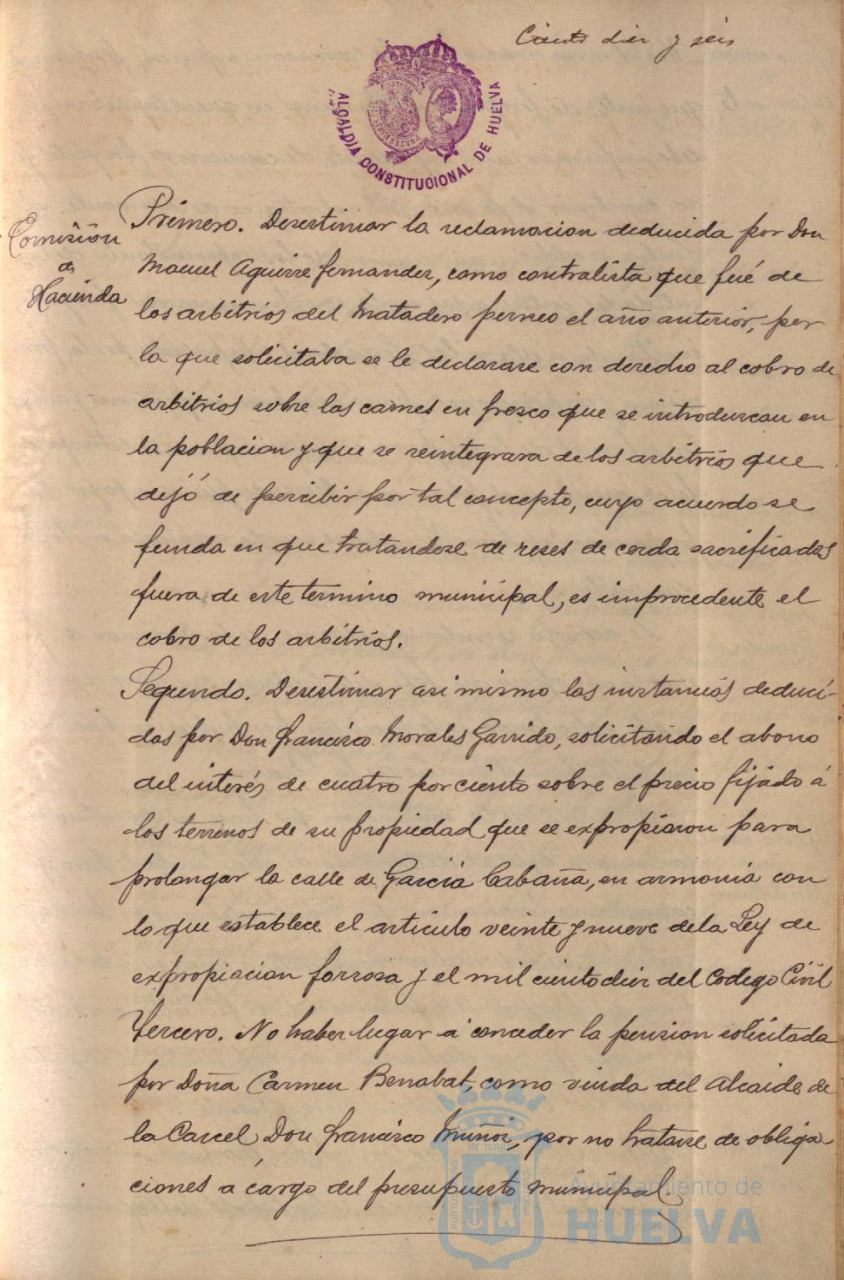 Ciento diez y seis
ALCALDIA CONSTITUCIONAL DE HUELVA
Comisión
de
Hacienda
Primero. Desestimar la reclamacion deducida por Don
Manuel Aguirre Fernandez, como contratista que fué de
los arbitrios del Matadero perneo el año anterior, por
la que solicitaba se le declarase con derecho al cobro de
arbitrios sobre las carnes en fresco que se introduzcan en
la poblacion y que se reintegrara de los arbitrios que
dejó de percibir por tal concepto, cuyo acuerdo se
funda en que tratandose de reses de cerda sacrificadas
fuera de este termino municipal, es improcedente el
cobro de los arbitrios.
Segundo. Desestimar asi mismo las instancias deduci-
das por Don Francisco Morales Garrido, solicitando el abono
del interés de cuatro por ciento sobre el precio fijado á
los terrenos de su propiedad que se expropiaron para
prolongar la calle de Garcia Cabaña, en armonia con
lo que establece el articulo veinte y nueve de la Ley de
expropiacion forzosa y el mil ciento diez del Codego Civil
Tercero. No haber lugar á conceder la pension solicitada
por Doña Carmen Benabat como viuda del Alcaide de
la Carcel Don Francisco Muñoz, por no tratarse de obliga-
ciones á cargo del presupuesto municipal
Ayuntamiento de
HUELVA